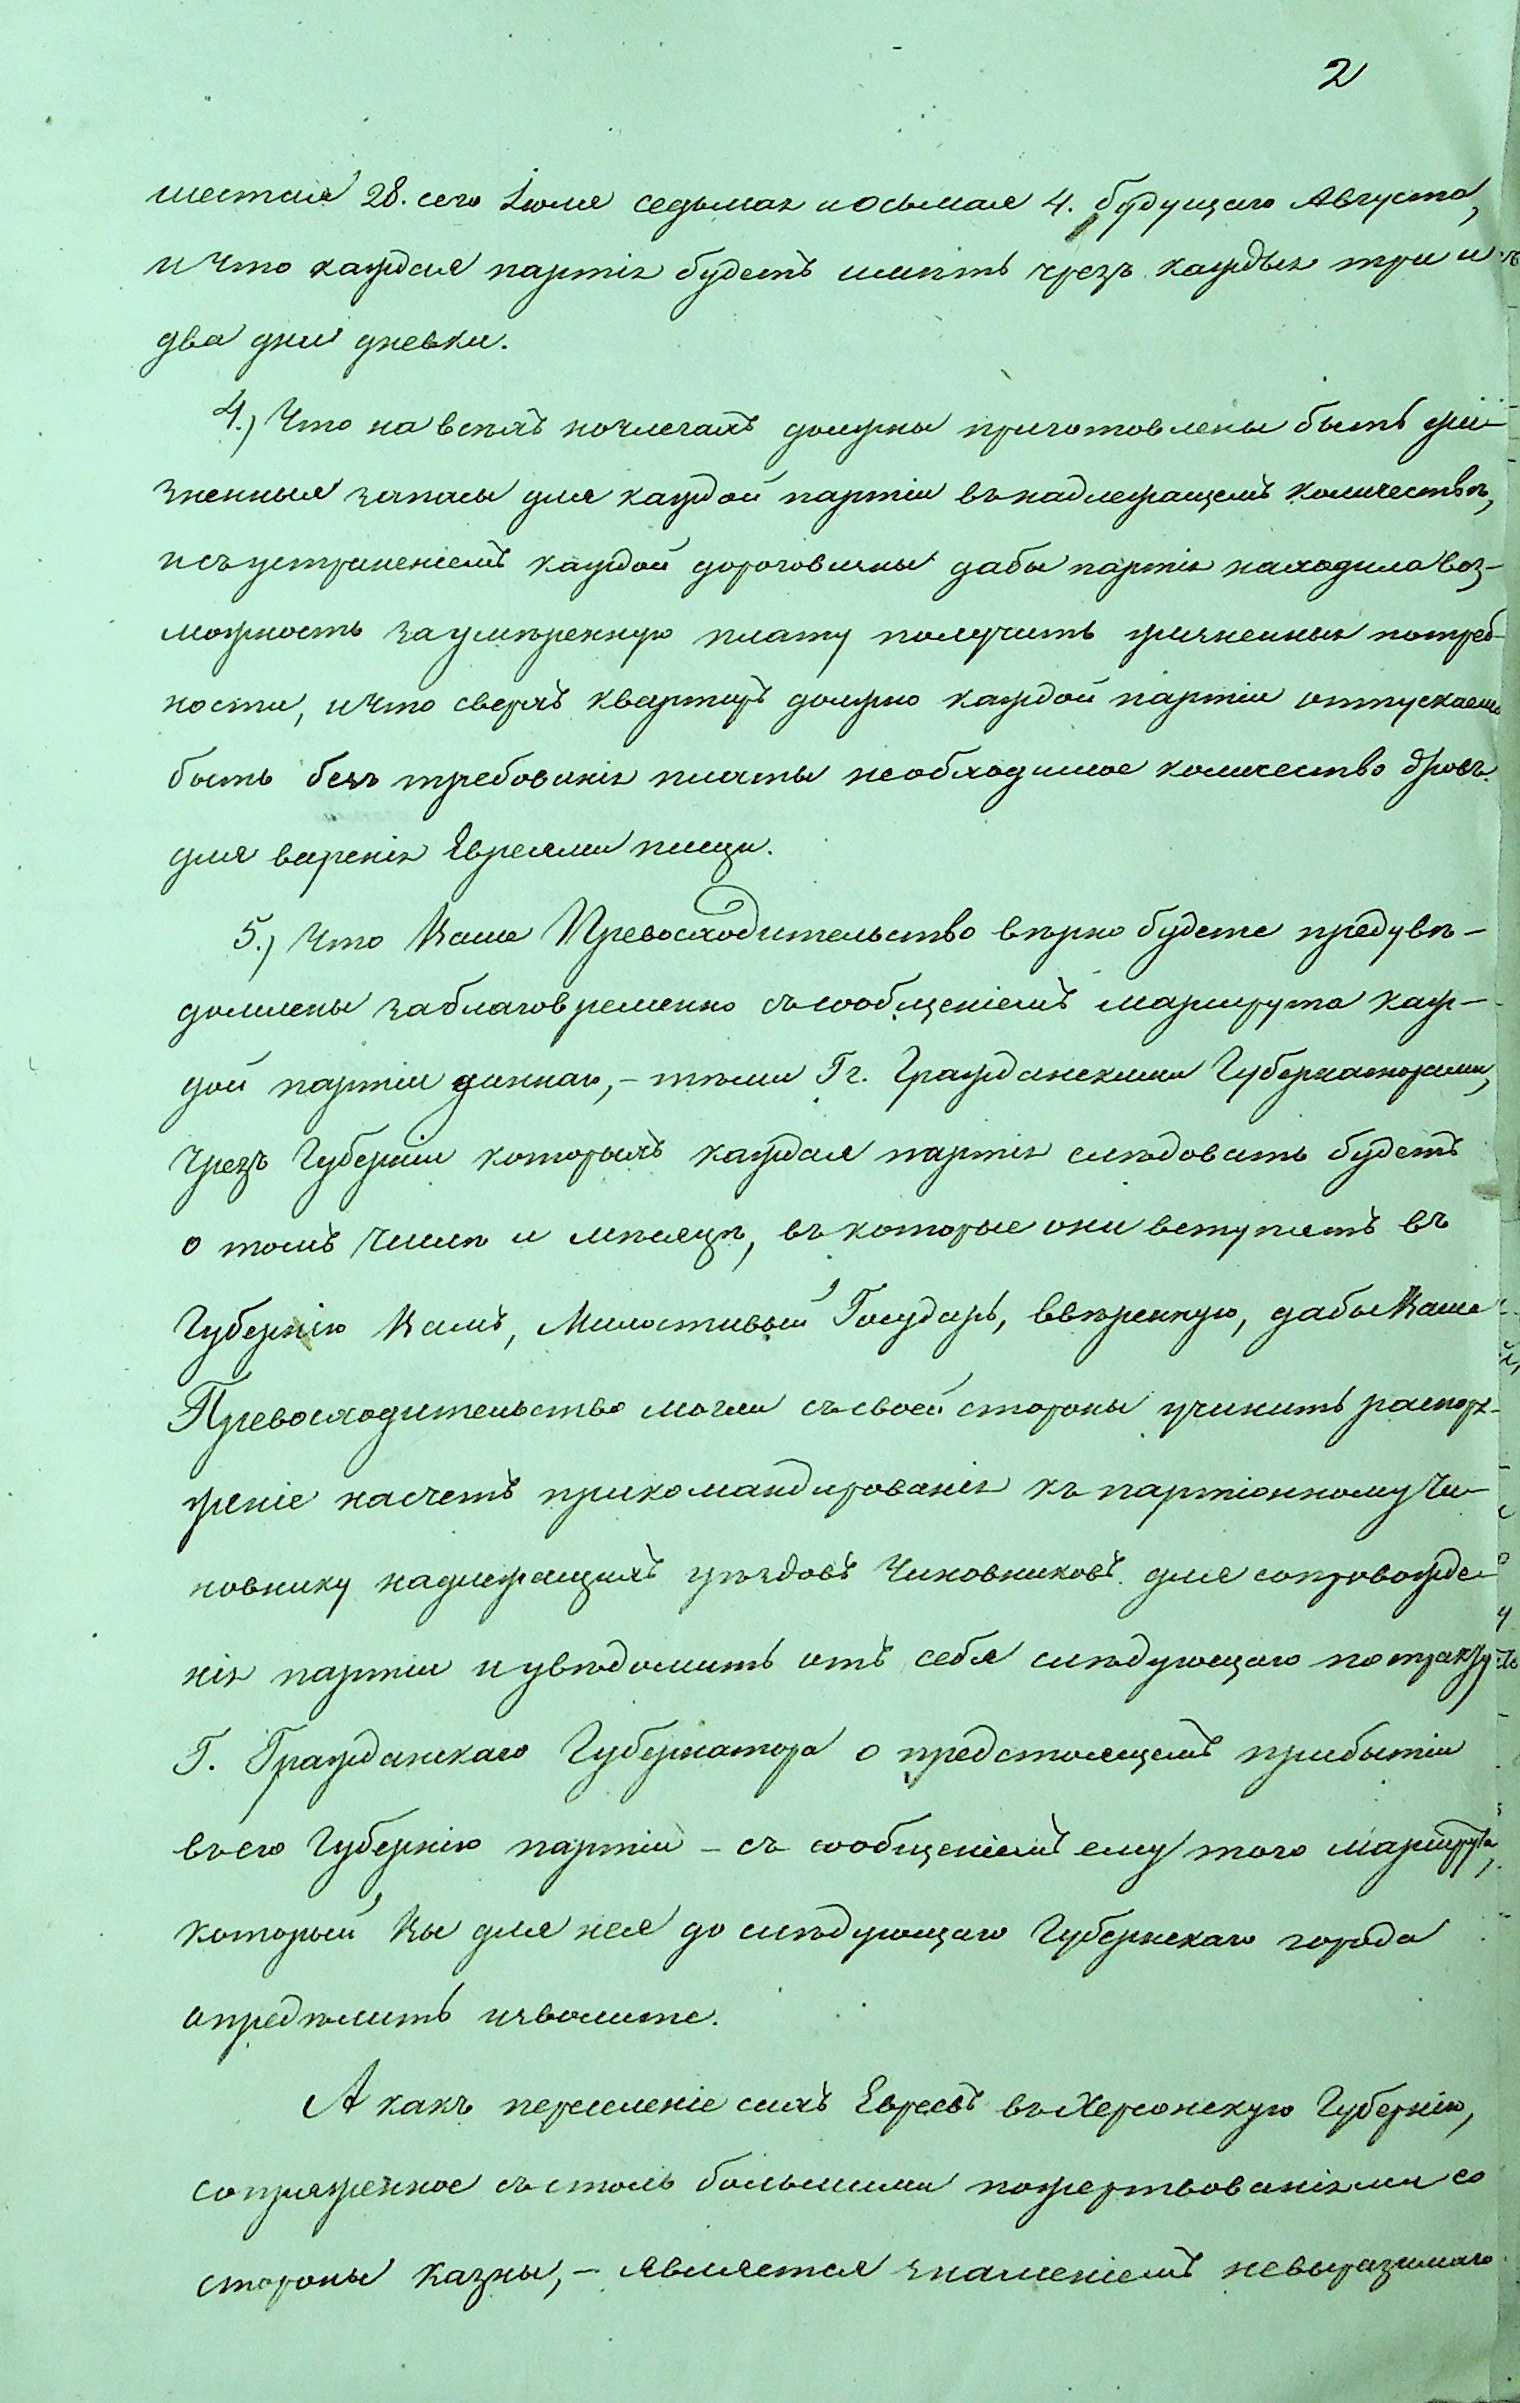 2
шестая 28. сего Іюля седьмая и осьмая 4. будущаго Августа,
и что каждая партія будетъ имѣть чрезъ каждыя три и
два дни дневки.
4.) Что на всѣхъ ночлегахъ должны приготовлены быть жи-
зненныя запасы для каждой партіи въ надлежащемъ количествѣ,
и съ устраненіемъ каждой дороговизны дабы партія находила воз-
можность за умѣренную плату получить жизненныя потреб-
ности, и что сверхъ квартиръ должно каждой партіи отпускаемо
быть безъ требованія платы необходимое количество дровъ
для варенія Евреями пищи.
5.) Что Ваше Превосходительство вѣрно будете предувѣ-
домлены заблаговременно съ сообщеніемъ маршрута каж-
дой партіи даннаго, - тѣми Гг. Гражданскими Губернаторами,
чрезъ Губерніи которыхъ каждая партія слѣдовать будетъ
о томъ числѣ и мѣсяцѣ, въ которые они вступятъ въ
Губернію Вамъ, Милостивый Государь, ввѣренную, дабы Ваше
Превосходительство могли съ своей стороны учинить распоря-
женіе насчетъ прикомандированія къ партіонному Чи-
новнику надлежащихъ уѣздовъ Чиновниковъ для сопровожде-
нія партіи и увѣдомить отъ себя слѣдующаго по тракту
Г. Гражданскаго Губернатора о предстоящемъ прибытіи
въ его Губернію партіи - съ сообщеніемъ ему того маршрута,
который Вы для нея до слѣдующаго Губернскаго города
опредѣлить изволите.
А какъ переселеніе сихъ Евреевъ въ Херсонскую Губернію,
сопряженное съ столь большими пожертвованіями со
стороны Казны, - является знаменіемъ невыразимаго